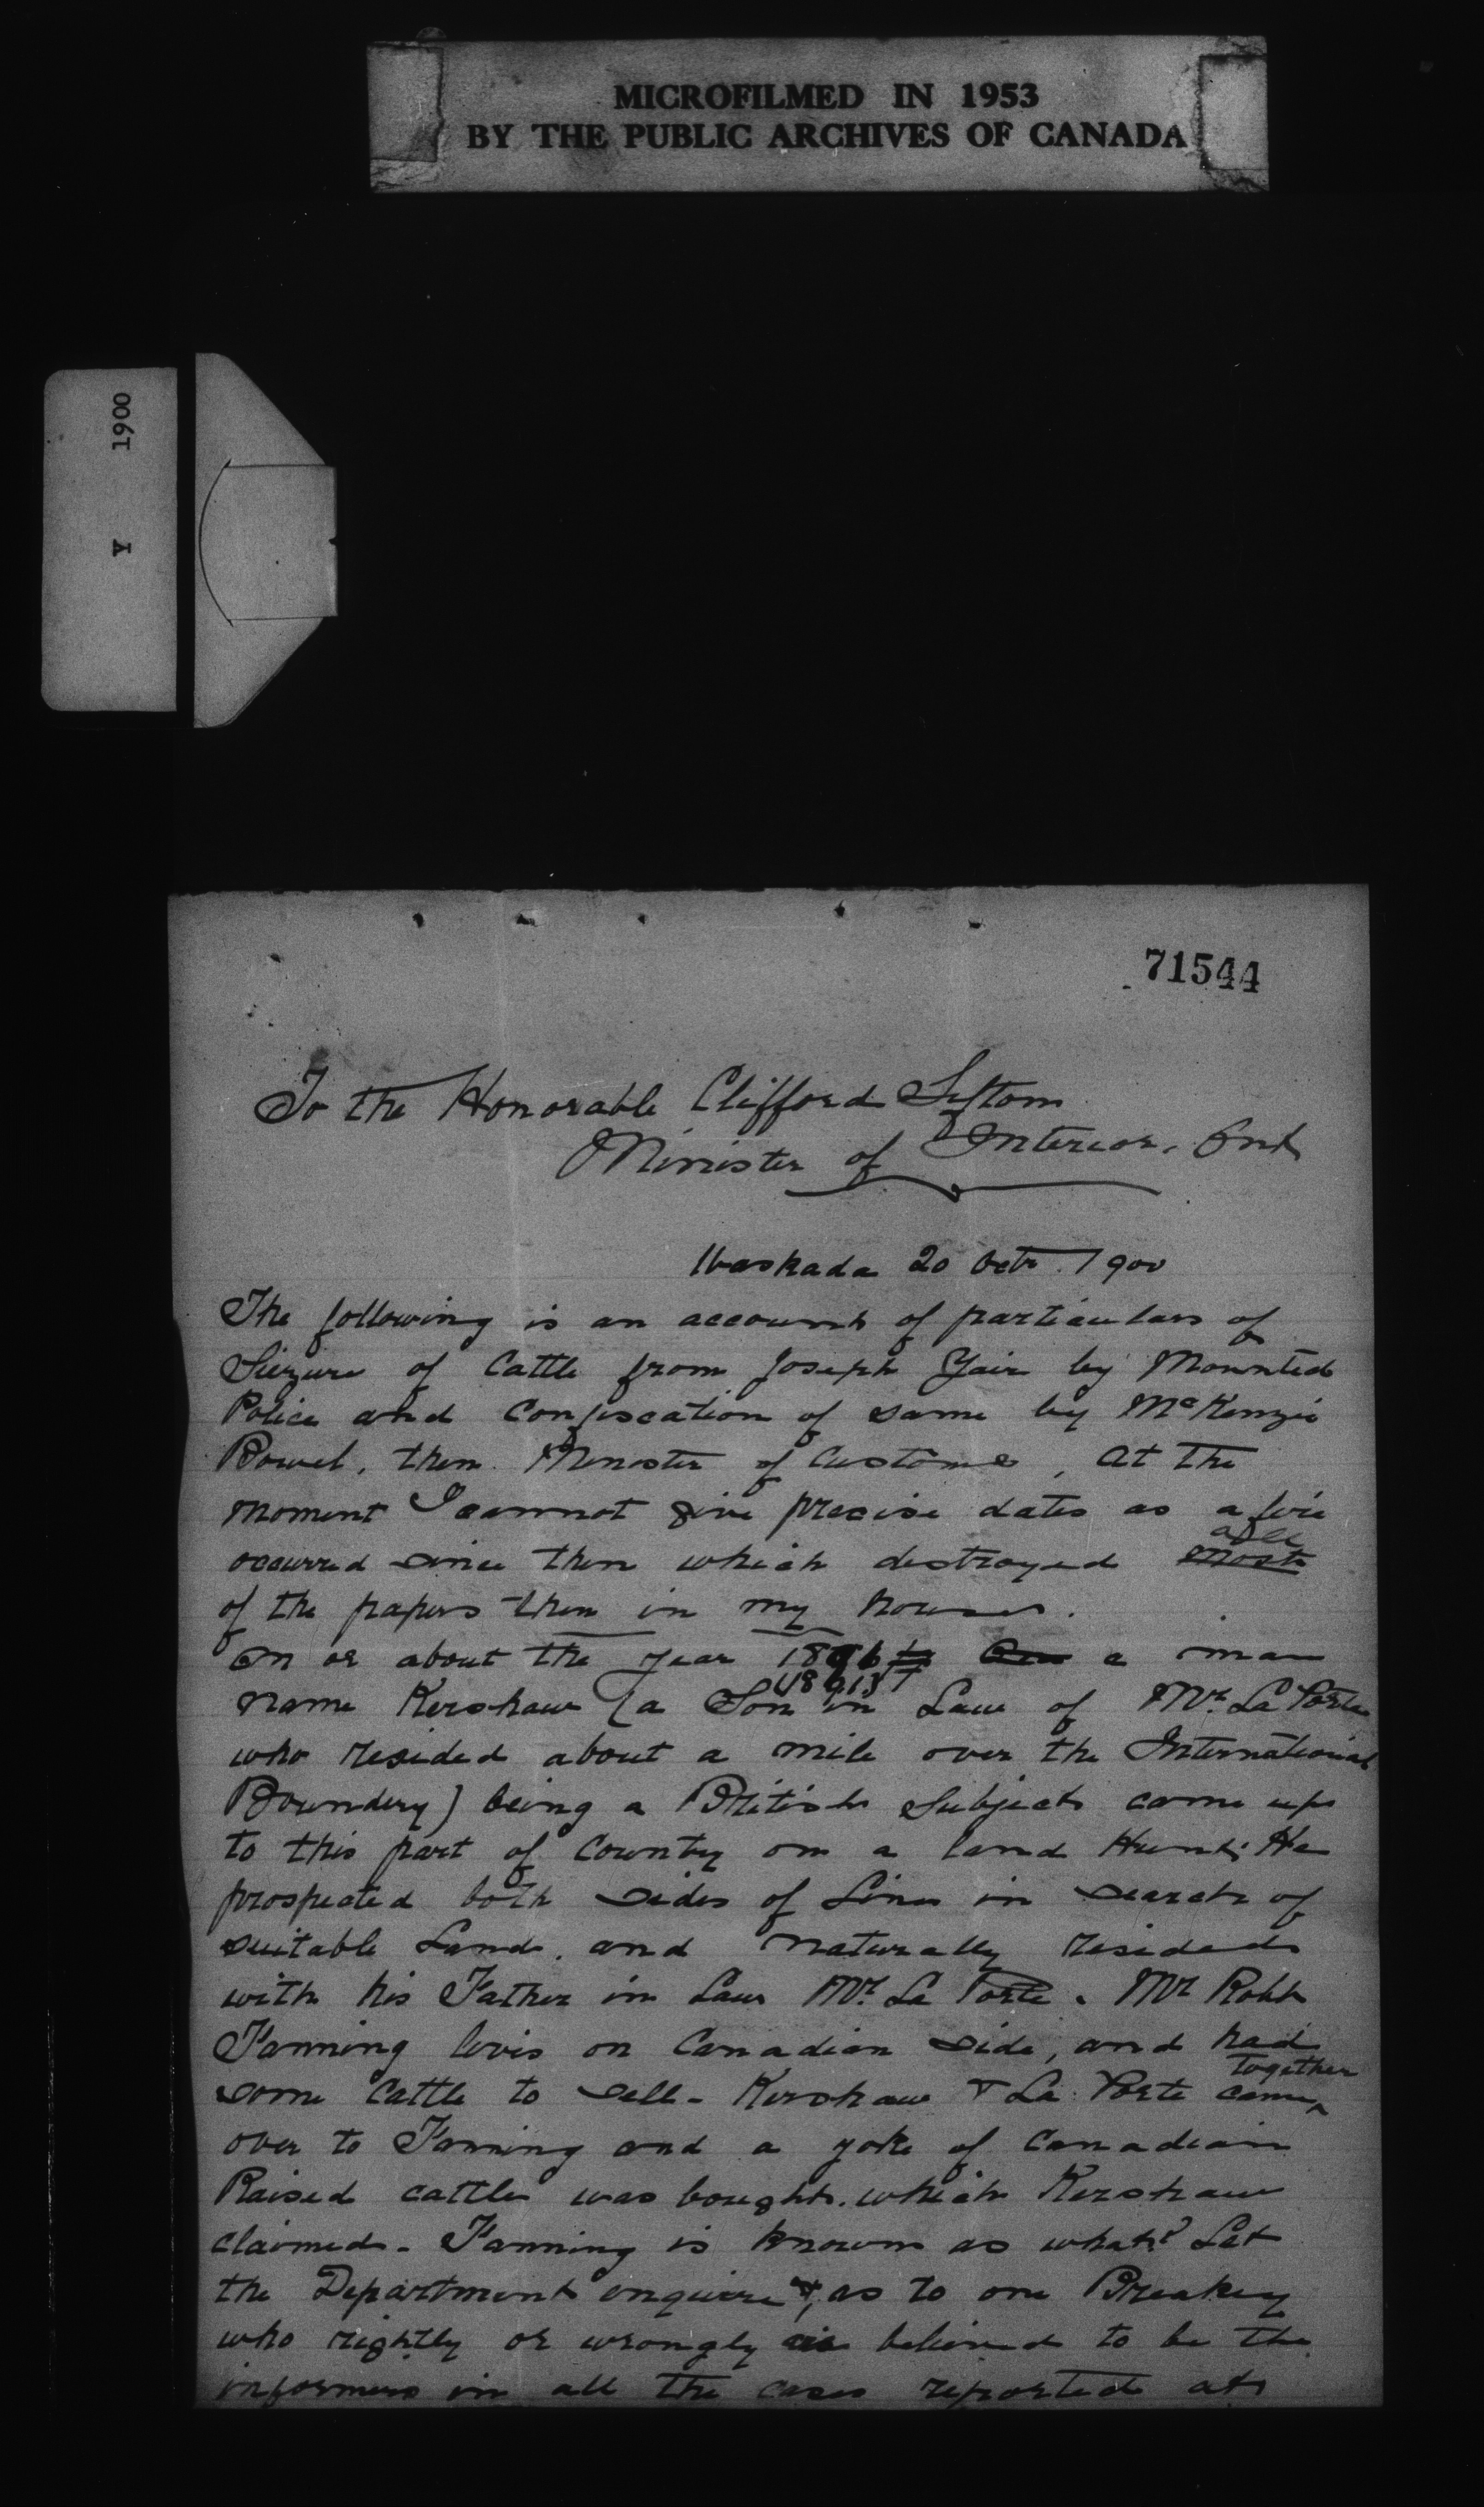 MICROFILMED IN 1953
BY THE PUBLIC ARCHIVES OF CANADA
Y 1900
71544
To the Honorable Clifford Sifton
Minister of Interior.
Waskada 20 Octr. 1900
The following is an account of particulars of
Siezure of Cattle from Joseph Yair by Mounted
Police and Confiscation of same by McKenzie
Bowel, then Minister of Customs, at the
moment I cannot give precise dates as a fire
occurred since then which destroyed most all
of the papers then in my house.
On or about the year a man
name Kershaw (a Son in Law of Mr. La Porte
who resided about a mile over the International
Boundery) being a British Subject came up
to this part of Country on a land Hunt. He
prospected both sides of Lines in search of
suitable Land, and naturally resided
with his Father in Law Mr. La Porte. Mr Robt
Fanning livis on Canadian side, and had
some Cattle to sell - Kershaw & La Porte came together
over to Fanning and a yoke of Canadian
Raised cattle was bought. which Kershaw
claimed - Fanning is known as what? Let
the Department enquire, as to one Breakey
who rightly or wrongly is believed to be the
informers in all the cases reported at